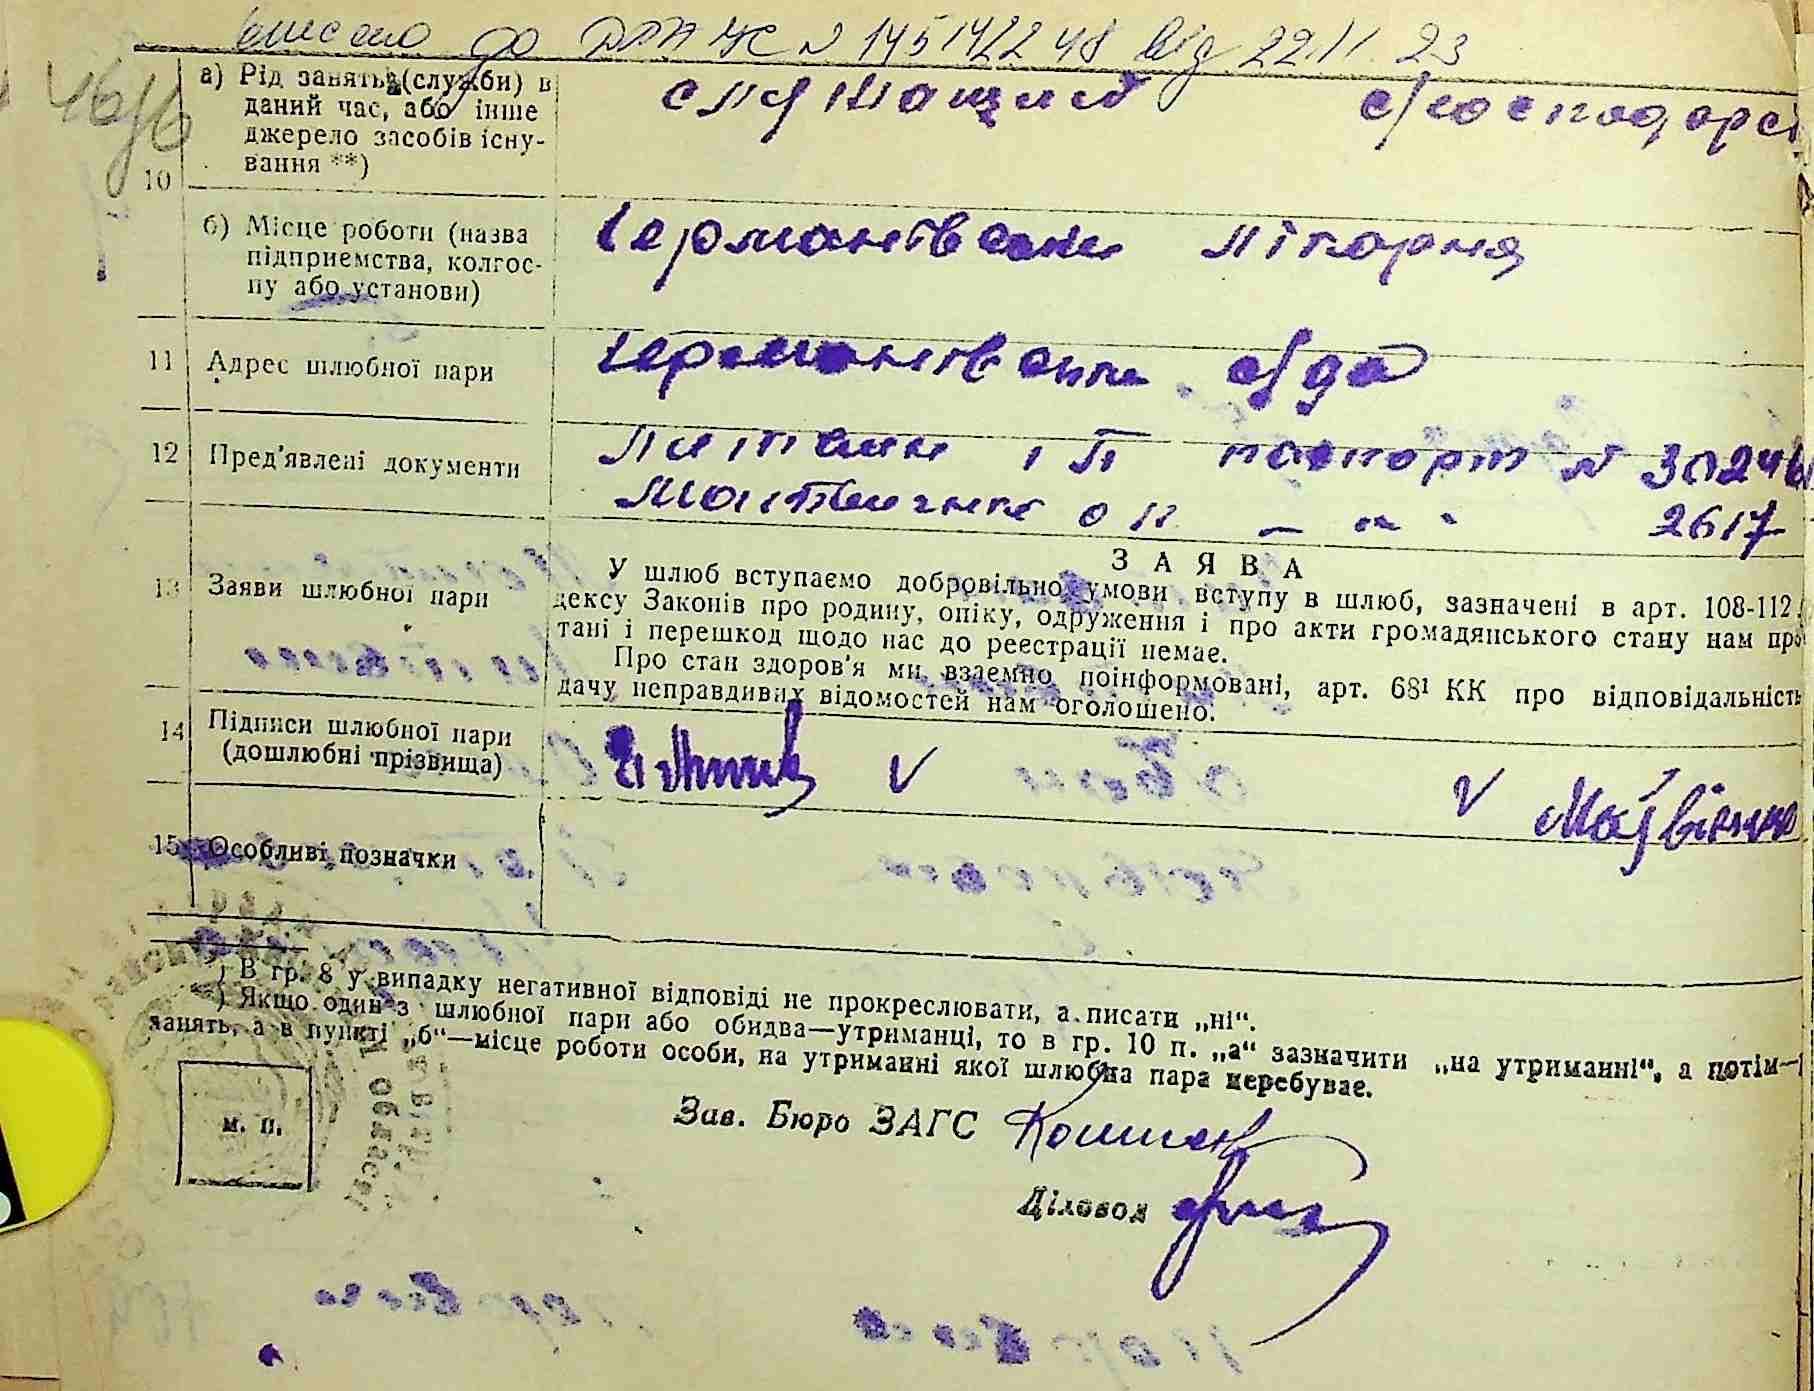 внесено до ДРАЦС № 14514248 від 22.11.23
10
а) Рід занять (служби) в
даний час, або інше
джерело засобів існу-
вання **)
служащий с/господарс
б) Місце роботи (назва
підприємства, колгос-
пу або установи)
Германівська лікарня
11 Адрес шлюбної пари
Германівська с/рада
12 Пред'явлені документи
паспорт № 30246
2617
13 Заяви шлюбної пари
ЗАЯВА
У шлюб вступаємо добровільно, умови вступу в шлюб, зазначені в арт. 108-112
дексу Законів про родину, опіку, одруження і про акти громадянського стану нам про
тані і перешкод щодо нас до реєстрації немає.
Про стан здоров'я ми взаємно поінформовані, арт. 68¹ КК про відповідальність
дачу неправдивих відомостей нам оголошено.
14 Підписи шлюбної пари
(дошлюбні прізвища)
15 Особливі позначки
*) В гр. 8 у випадку негативної відповіді не прокреслювати, а писати „ні“.
**) Якщо один з шлюбної пари або обидва—утриманці, то в гр. 10 п. „а“ зазначити „на утриманні“, а потім—
занять, а в пункті „б“—місце роботи особи, на утриманні якої шлюбна пара перебуває.
м. п.
Зав. Бюро ЗАГС
Діловод